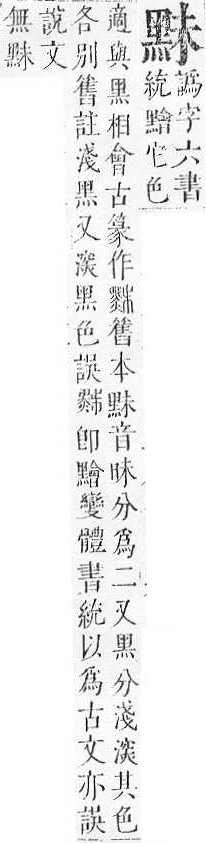 䵢
譌字六書
統䵳它色
適與黑相會古篆作舊本䵢音昧分爲二又黑分淺深其色
各別舊註淺黑又深黑色誤卽䵳變體書統以爲古文亦誤
說文
無䵢